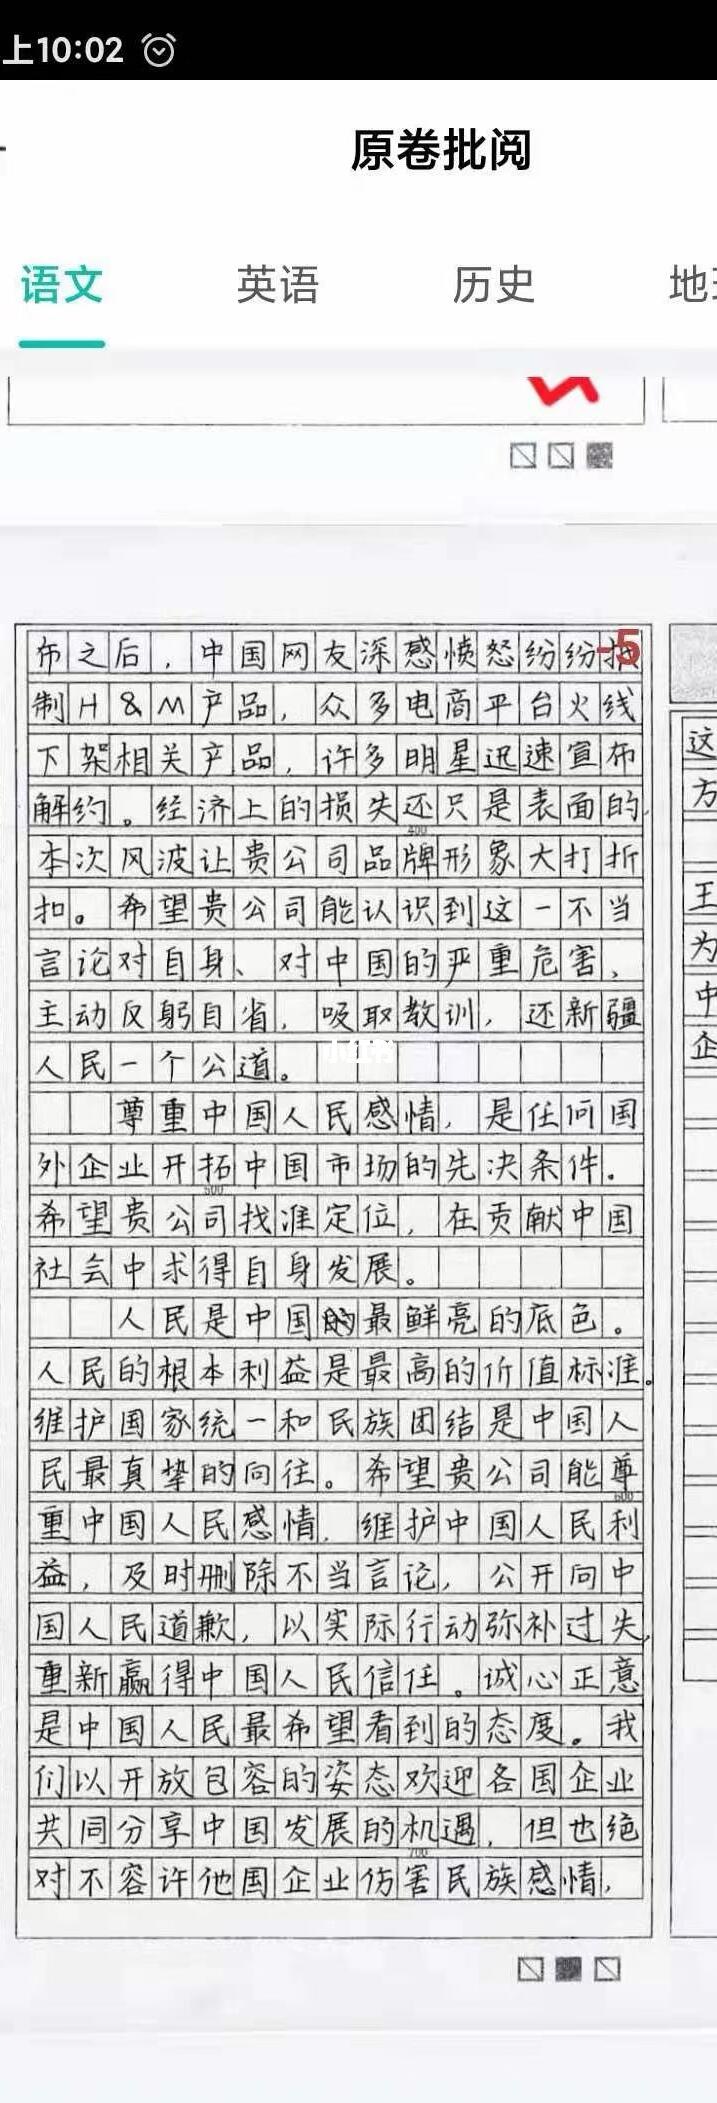 上10:02
原卷批阅
语文 英语 历史
布之后，中国网友深感愤怒纷纷抵
-5
制H&M产品，众多电商平台火线
下架相关产品，许多明星迅速宣布
解约。经济上的损失还只是表面的，
400
本次风波让贵公司品牌形象大打折
扣。希望贵公司能认识到这一不当
言论对自身、对中国的严重危害，
主动反躬自省，吸取教训，还新疆
人民一个公道。
小红书
尊重中国人民感情，是任何国
外企业开拓中国市场的先决条件。
500
希望贵公司找准定位，在贡献中国
社会中求得自身发展。
人民是中国的最鲜亮的底色。
人民的根本利益是最高的价值标准。
维护国家统一和民族团结是中国人
民最真挚的向往。希望贵公司能尊
600
重中国人民感情，维护中国人民利
益，及时删除不当言论，公开向中
国人民道歉，以实际行动弥补过失，
重新赢得中国人民信任。诚心正意
是中国人民最希望看到的态度。我
们以开放包容的姿态欢迎各国企业
共同分享中国发展的机遇，但也绝
700
对不容许他国企业伤害民族感情，
这
方
王
为
中
企